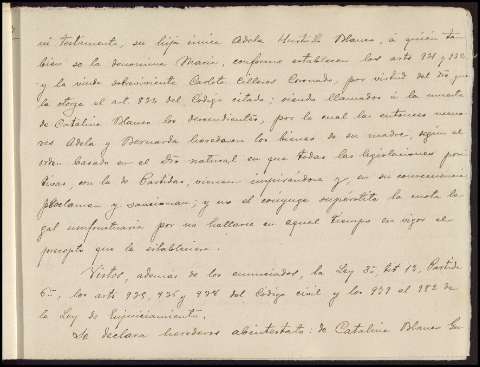 in testamento, su hija única Adela Hurtado Blanco, á quien tam
bien se la denomina Maria, conforme establecen los arts 931 y 932
y la viuda sobreviviente Carlota Coronado, por virtud del dro que
la otorga el art 834 del Codigo citado; siendo llamados á la muerte
de Catalina Blanco los descendientes, por la cual las entonces meno
res Adela y Bernarda heredaron los bienes de su madre, según el
orden basado en el dro natural en que todas las legislaciones posi
tivas, con la de Partidas, vienen inspirándose y, en su consecuencia
proclaman y sancionan; y no el cónyuge supérstite la cuota le
gal usufructuaria por no hallarse en aquel tiempo en vigor el
precepto que la estableciera.
Vistos, ademas de los enunciados, la Ley 3ª, tit 13, Partida
6ª, los arts 935, 936 y 938 del Codigo civil y los 977 al 982 de
la Ley de Enjuiciamiento.
Se declara herederos abintestato: de Catalina Blanco